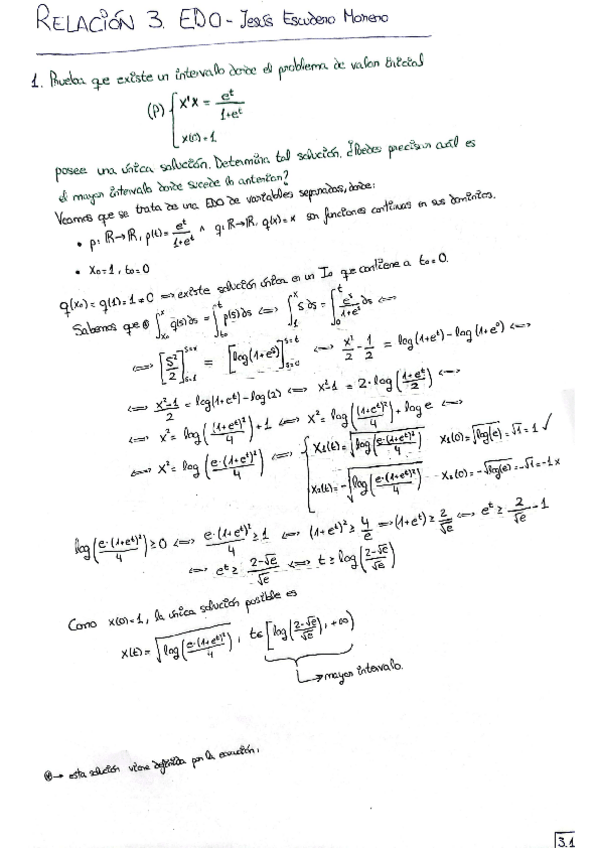 RELACIÓN 3. EDO - Jesús Escudero Moreno
1. Prueba que existe un intervalo donde el problema de valor inicial
(P) { x'x = e^t/(1+e^t)
x(0)=1
posee una única solución. Determina tal solución. ¿Puedes precisar cuál es
el mayor intervalo donde sucede lo anterior?
Veamos que se trata de una EDO de variables separadas, donde:
• p: ℝ→ℝ, p(t)= e^t/(1+e^t) ∧ q: ℝ→ℝ, q(x)=x son funciones continuas en sus dominios.
• x₀=1, t₀=0
q(x₀)=q(1)=1≠0 ⟹ existe solución única en un I₀ que contiene a t₀=0.
Sabemos que ⊛ ∫_{x₀}^{x} q(s)ds = ∫_{t₀}^{t} p(s)ds ⟺ ∫_{1}^{x} s ds = ∫_{0}^{t} e^s/(1+e^s) ds ⟺
⟺ [s²/2]_{s=1}^{s=x} = [log(1+e^s)]_{s=0}^{s=t} ⟺ x²/2 - 1/2 = log(1+e^t) - log(1+e^0) ⟺
⟺ (x²-1)/2 = log(1+e^t) - log(2) ⟺ x²-1 = 2·log((1+e^t)/2) ⟺
⟺ x² = log((1+e^t)²/4) + 1 ⟺ x² = log((1+e^t)²/4) + log e ⟺
⟺ x² = log(e·(1+e^t)²/4) ⟺ { x₁(t) = √log(e·(1+e^t)²/4) x₁(0)=√log(e)=√1=1 ✓
x₂(t) = -√log(e·(1+e^t)²/4) x₂(0)=-√log(e)=-√1=-1 x
log(e·(1+e^t)²/4) ≥ 0 ⟺ e·(1+e^t)²/4 ≥ 1 ⟺ (1+e^t)² ≥ 4/e ⟹ (1+e^t) ≥ 2/√e ⟺ e^t ≥ 2/√e - 1
⟺ e^t ≥ (2-√e)/√e ⟺ t ≥ log((2-√e)/√e)
Como x(0)=1, la única solución posible es
x(t) = √log(e·(1+e^t)²/4), t∈[log((2-√e)/√e), +∞)
→ mayor intervalo.
⊛ → esta solución viene definida por la ecuación.
3.1